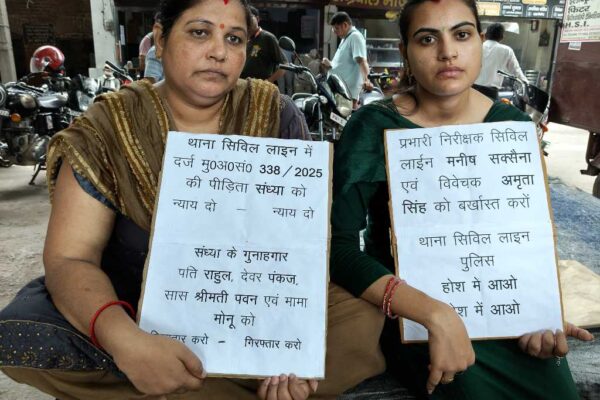 थाना सिविल लाइन में
दर्ज मु0अ0सं0 338/2025
की पीड़िता संध्या को
न्याय दो – न्याय दो
संध्या के गुनाहगार
पति राहुल, देवर पंकज,
सास श्रीमती पवन एवं मामा
मोनू को
करो - गिरफ्तार करो
प्रभारी निरीक्षक सिविल
लाईन मनीष सक्सैना
एवं विवेचक अमृता
सिंह को बर्खास्त करों
थाना सिविल लाइन
पुलिस
होश में आओ
में आओ
H.S.I.